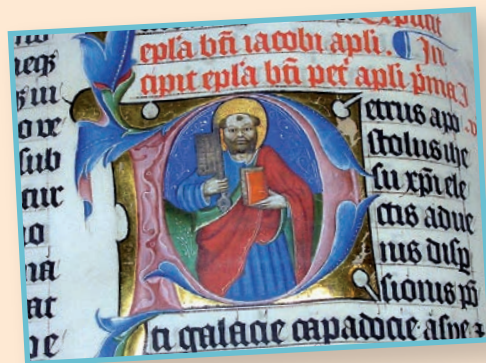 Explicit
epl̄a bt̄i iacobi apl̄i. In
cipit epl̄a bt̄i pet̄ apl̄i p̄ma
etrus apo
stolus ihe
su xp̄i ele
ctis adue
nis disp̄
sionis pō
ti galacie capadocie
sub
tur
at